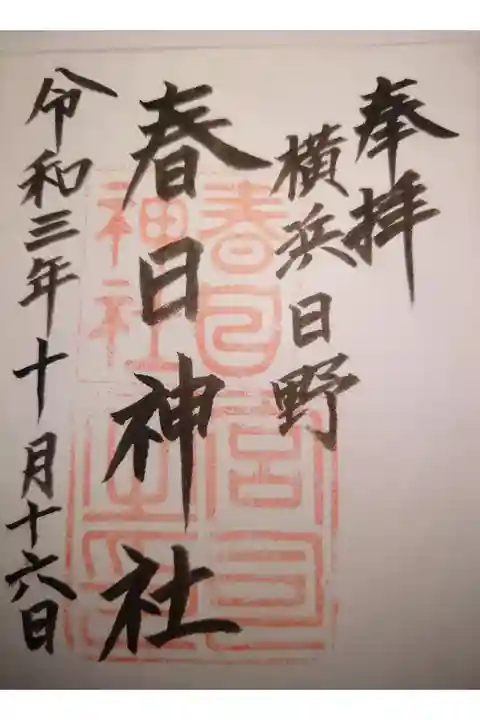 奉拝
横浜日野
春日神社
令和三年十月十六日
春日
神社
宮司
之印